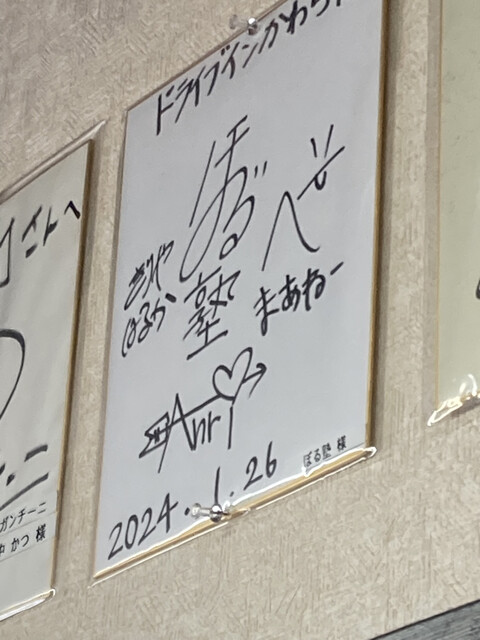 ドライブインかわら
ぼる
塾
きりや
はるか
まあねー
Anri
2024.1.26
ぼる塾 様
さんへ
ガンチーニ
中 かつ 様